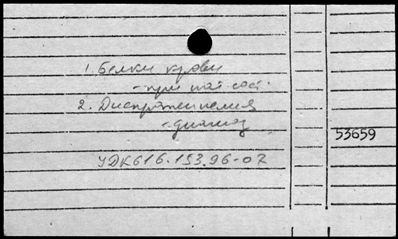 1. Белки крови
- при пат. сост.
2. Диспротеинемия
- диагноз
53659
УДК616.153.96-07